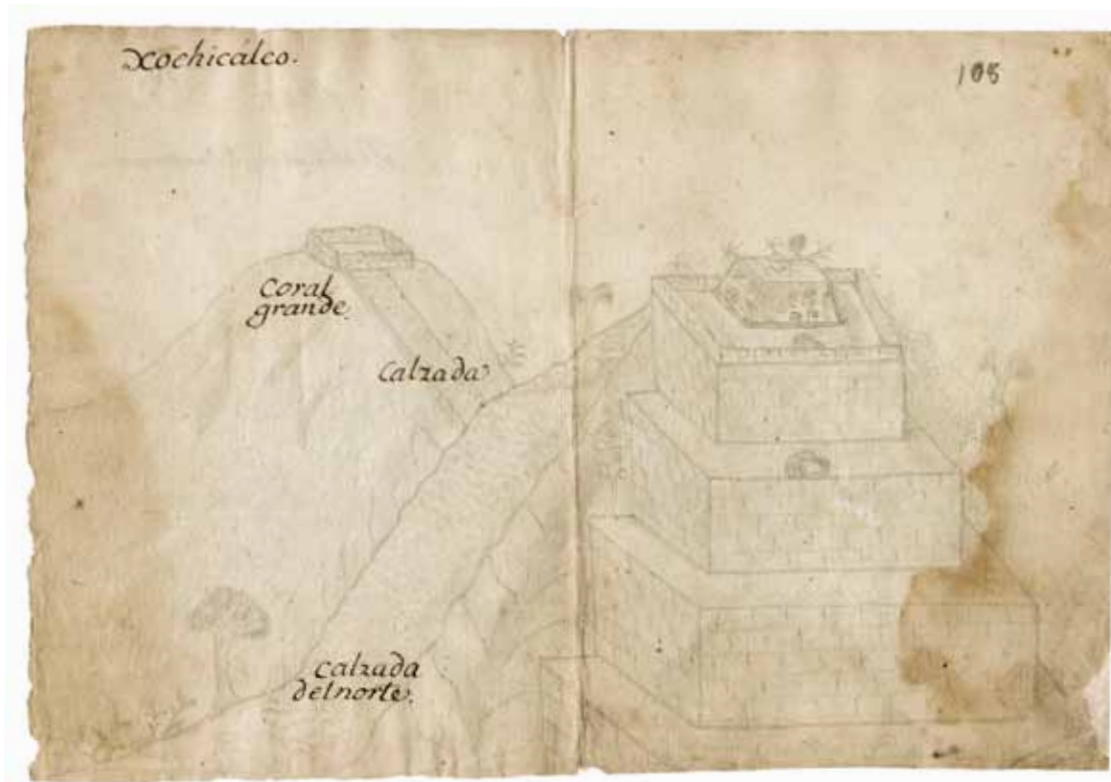 Xochicálco.
108
Coral
grande.
Calzada
Calzada
del norte.